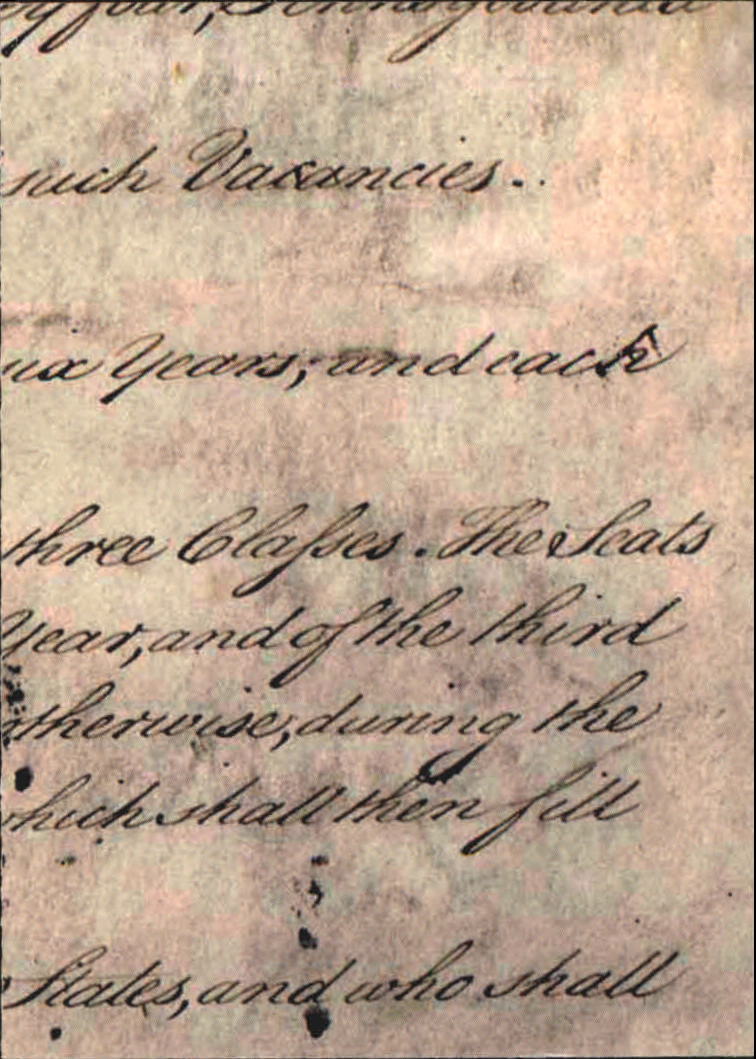 such Vacancies.
six Years; and each
three Claſses. The Seats
Year, and of the third
otherwise, during the
which shall then fill
States, and who shall